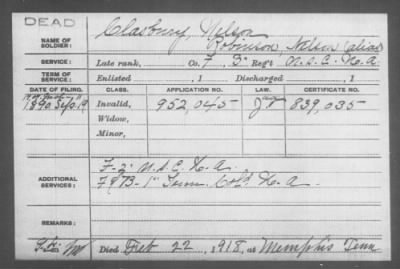 DEAD
NAME OF SOLDIER: Clasbury, Nelson
Robinson, Nelson (alias)
SERVICE: Late rank, Co. F, 3" Reg't U.S.C. H.A.
TERM OF SERVICE: Enlisted , 1 Discharged , 1
DATE OF FILING. CLASS. APPLICATION NO. LAW. CERTIFICATE NO.
1890 Sept. 19 Invalid, 952,045 839,035
Widow,
Minor,
ADDITIONAL SERVICES: F-2" U.S.C. H.A.
F & B-1" Tenn. Col'd H.A.
REMARKS:
Died Feb 22, 1918, at Memphis Tenn